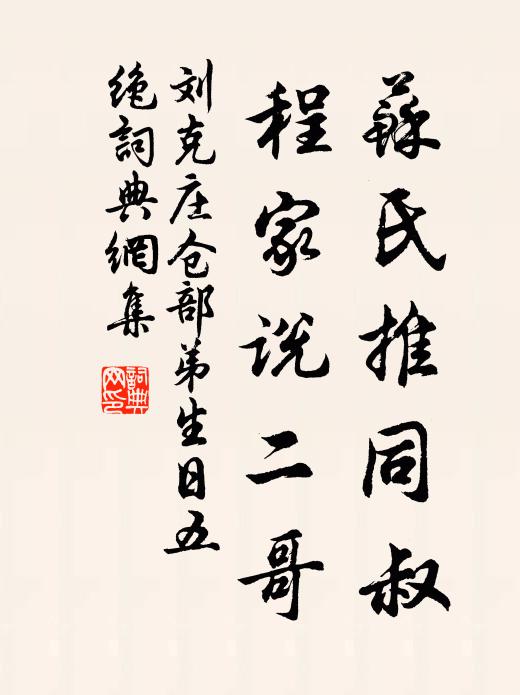 蘇氏推同叔
程家说二哥
刘克庄仓部弟生日五
绝詞典網集
詞典网印